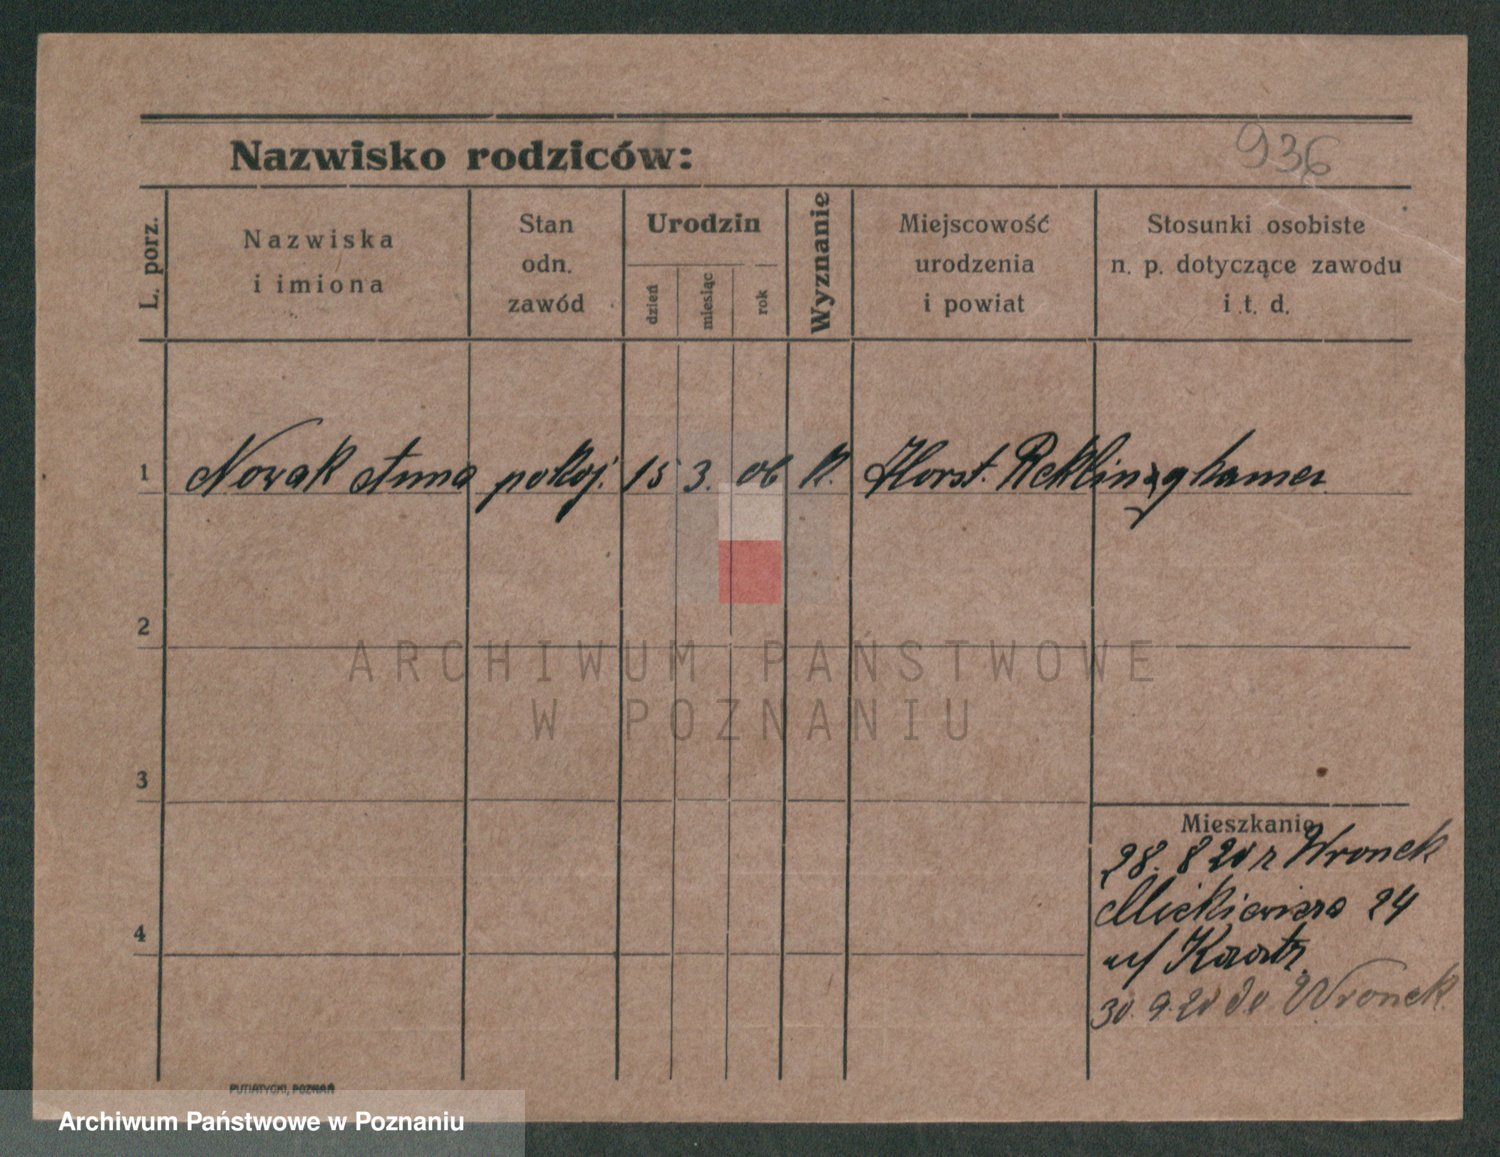 936
Nazwisko rodziców:
L. porz.
Nazwiska
i imiona
Stan
odn.
zawód
Urodzin
dzień
miesiąc
rok
Wyznanie
Miejscowość
urodzenia
i powiat
Stosunki osobiste
n. p. dotyczące zawodu
i t. d.
1 Nowak Anna pokoj. 15 3. 06 k. Horst.
2
ARCHIWUM PAŃSTWOWE
W POZNANIU
3
Mieszkanie
28. 8 20 z Wronek
Mickiewicza 24
4
30. 9. 20 do Wronek
PUTIATYCKI, POZNAŃ
Archiwum Państwowe w Poznaniu